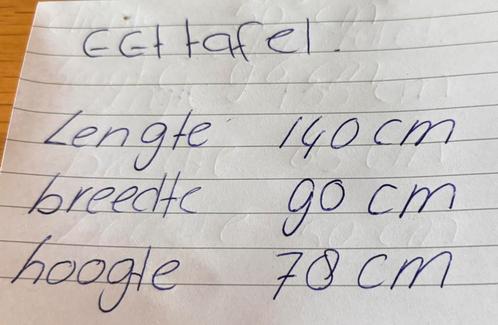 EEttafel.
Lengte 140 cm
breedte 90 cm
hoogte 78 cm